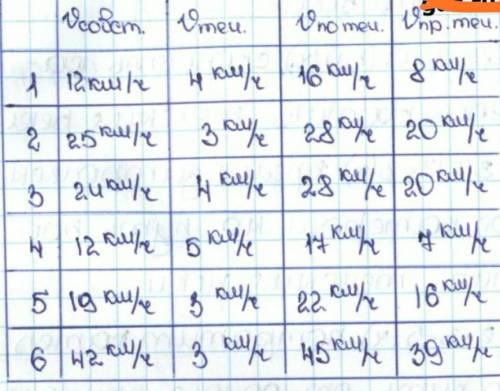 Vсобст. Vтеч. Vпо теч. Vпр. теч.
1 12 км/ч 4 км/ч 16 км/ч 8 км/ч
2 25 км/ч 3 км/ч 28 км/ч 20 км/ч
3 24 км/ч 4 км/ч 28 км/ч 20 км/ч
4 12 км/ч 5 км/ч 17 км/ч 7 км/ч
5 19 км/ч 3 км/ч 22 км/ч 16 км/ч
6 42 км/ч 3 км/ч 45 км/ч 39 км/ч